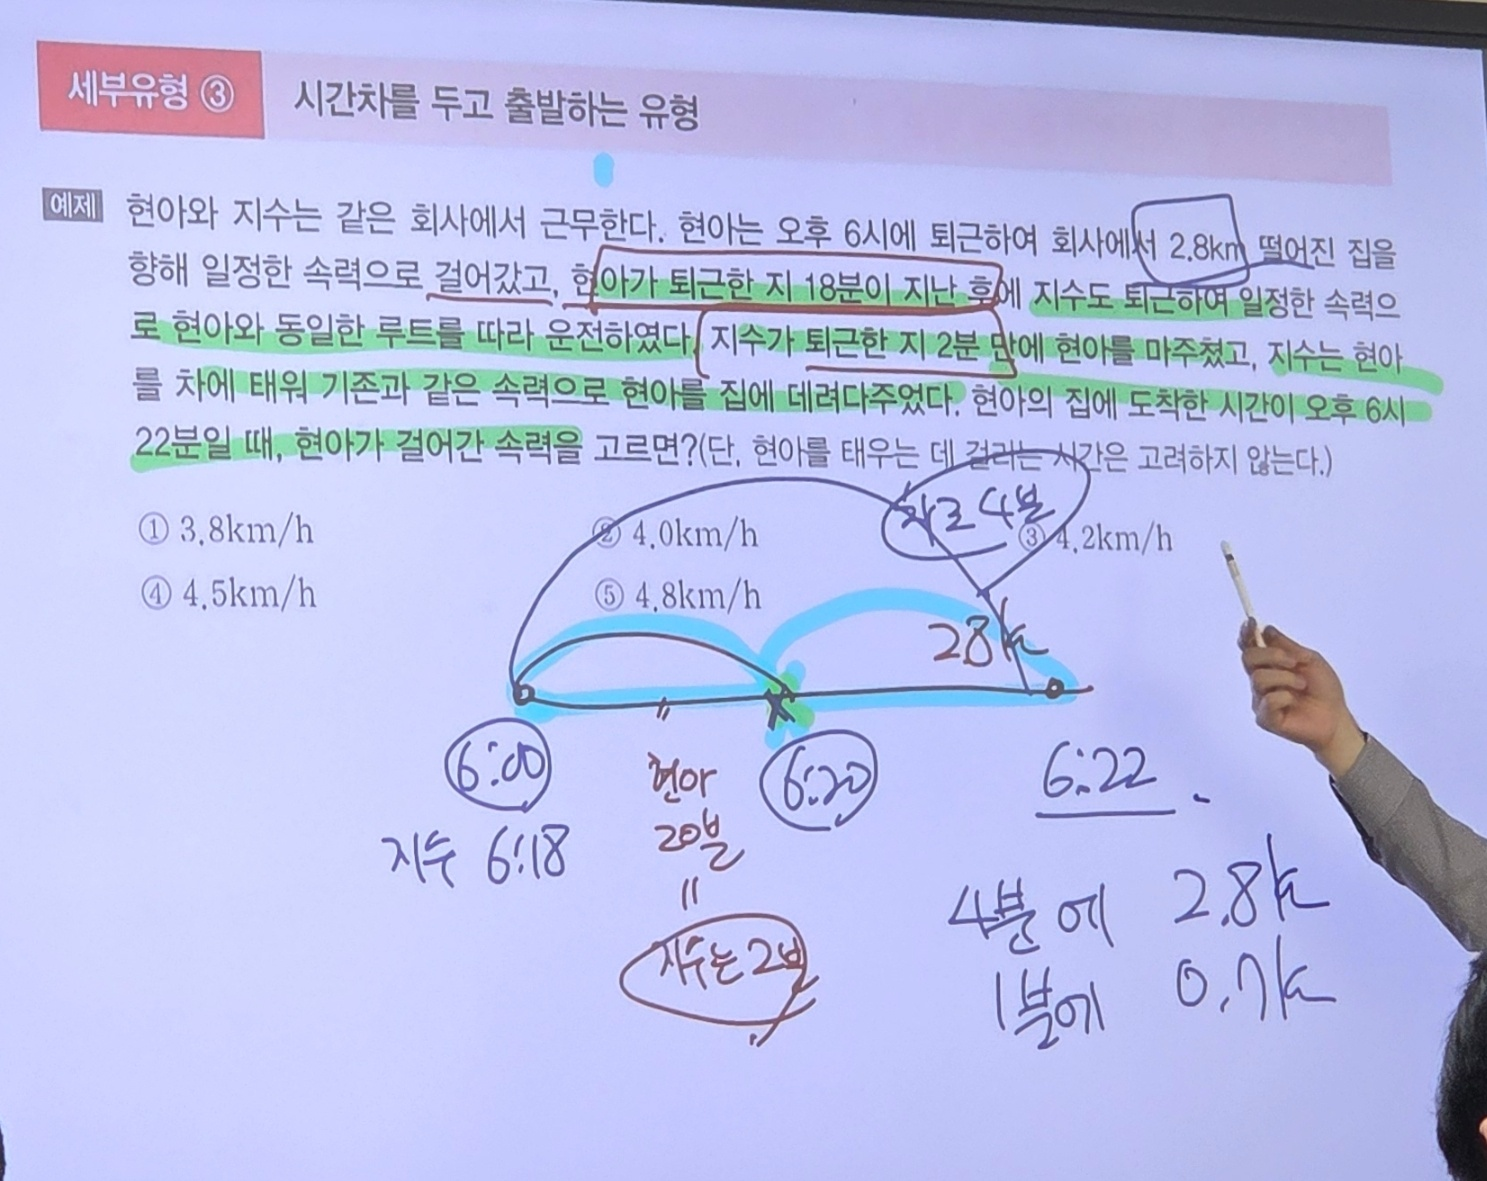 세부유형 ③ 시간차를 두고 출발하는 유형
예제 현아와 지수는 같은 회사에서 근무한다. 현아는 오후 6시에 퇴근하여 회사에서 2.8km 떨어진 집을
향해 일정한 속력으로 걸어갔고, 현아가 퇴근한 지 18분이 지난 후에 지수도 퇴근하여 일정한 속력으
로 현아와 동일한 루트를 따라 운전하였다. 지수가 퇴근한 지 2분 만에 현아를 마주쳤고, 지수는 현아
를 차에 태워 기존과 같은 속력으로 현아를 집에 데려다주었다. 현아의 집에 도착한 시간이 오후 6시
22분일 때, 현아가 걸어간 속력을 고르면?(단, 현아를 태우는 데 걸리는 시간은 고려하지 않는다.)
① 3.8km/h ② 4.0km/h ③ 4.2km/h
④ 4.5km/h ⑤ 4.8km/h
차로 4분
28k
6:00 현아 6:20 6:22
지수 6:18 20분
지수는 2분
4분에 2.8k
1분에 0.7k